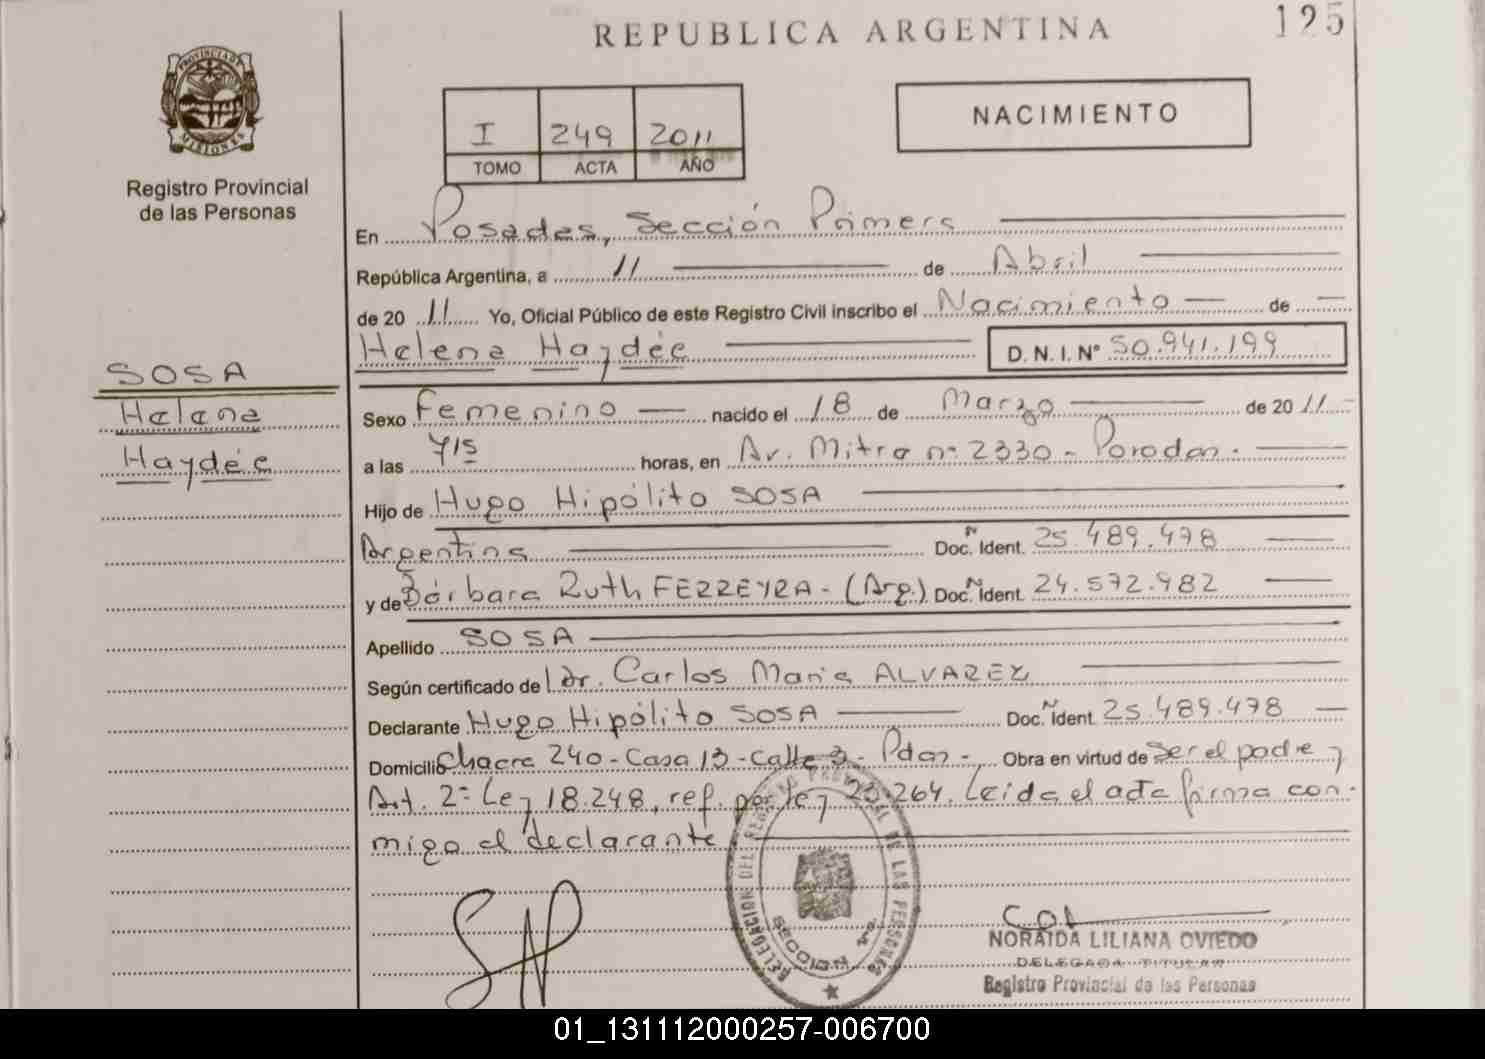 REPUBLICA ARGENTINA
125
PROVINCIA DE
MISIONES
Registro Provincial
de las Personas
I 249 2011
TOMO ACTA AÑO
NACIMIENTO
En Posadas, Sección Primera
República Argentina, a 11 de Abril
de 20 11 Yo, Oficial Público de este Registro Civil inscribo el Nacimiento de
Helena Haydée D.N.I. Nº 50.941.199
SOSA
Helena
Haydée
Sexo Femenino nacido el 18 de Marzo de 20 11
a las 7:15 horas, en Av. Mitre nº 2330 - Posadas.
Hijo de Hugo Hipólito SOSA
Argentina Doc. Ident. Nº 25.489.478
y de Bárbara Ruth FERREYRA - (Arg.) Doc. Ident. Nº 24.572.982
Apellido SOSA
Según certificado de Dr. Carlos María ALVAREZ
Declarante Hugo Hipólito SOSA Doc. Ident. Nº 25.489.478
Domicilio Chacra 240 - Casa 13 - Calle 3 - Pdas - Obra en virtud de Ser el padre y
Art. 2º Ley 18.248, ref. por ley 20.264. Leída el acta firma con-
migo el declarante
DELEGACION DEL REGISTRO PROVINCIAL DE LAS PERSONAS
SECCION 1ra.
NORAIDA LILIANA OVIEDO
DELEGADA TITULAR
Registro Provincial de las Personas
01_131112000257-006700